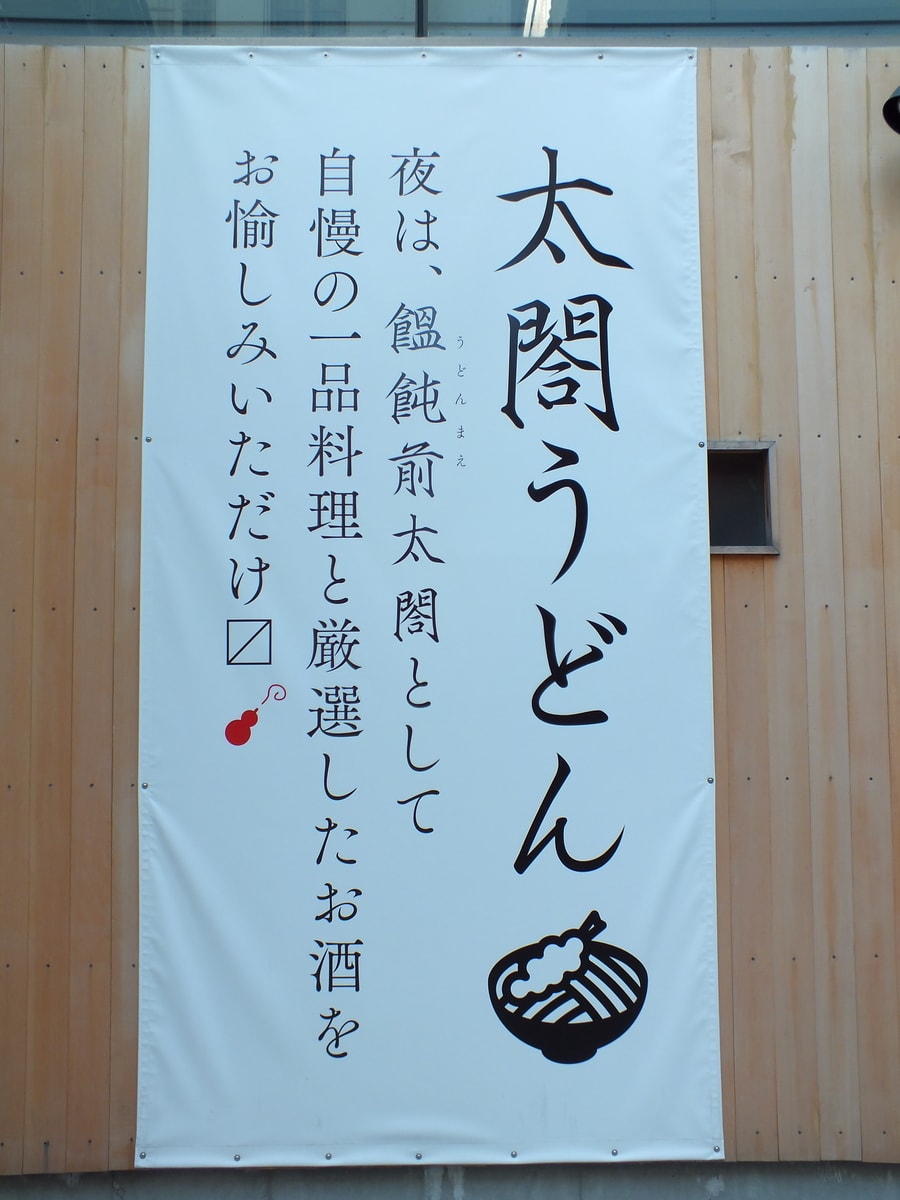 太閤うどん
夜は、饂飩前太閤として
うどんまえ
自慢の一品料理と厳選したお酒を
お愉しみいただけ〼